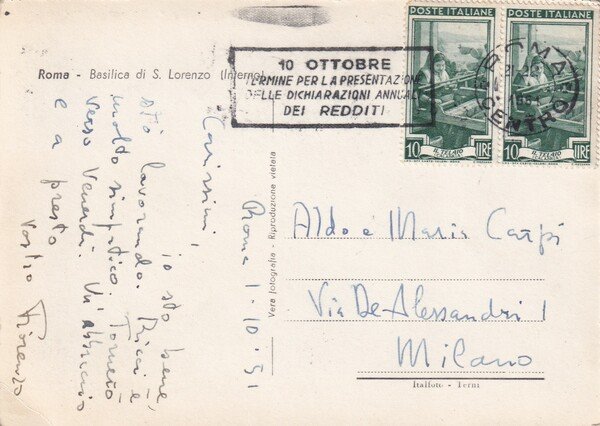 Roma - Basilica di S. Lorenzo (Interno)
10 OTTOBRE
TERMINE PER LA PRESENTAZIONE
DELLE DICHIARAZIONI ANNUALI
DEI REDDITI
POSTE ITALIANE
10 LIRE
IL TELAIO
POSTE ITALIANE
10 LIRE
IL TELAIO
ROMA
CENTRO
Roma 1·10·51
Carissimi,
io sto bene,
sto lavorando. Ricci è
molto simpatico. Tornerò
verso Venerdì. Un abbraccio
e a presto
Vostro Fiorenzo
Vera fotografia - Riproduzione vietata
Aldo e Maria Carpi
Via De Alessandri 1
Milano
Italfoto - Terni